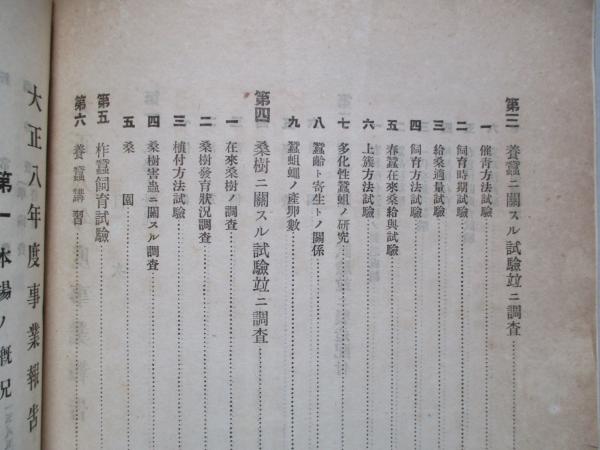 第三 養蠶ニ關スル試驗竝ニ調査
一 催青方法試驗
二 飼育時期試驗
三 給桑適量試驗
四 飼育方法試驗
五 春蠶在來桑給與試驗
六 上簇方法試驗
七 多化性蠶蛆ノ硏究
八 蠶齡ト寄生トノ關係
九 蠶蛆蠅ノ產卵數
第四 桑樹ニ關スル試驗竝ニ調査
一 在來桑樹ノ調査
二 桑樹發育狀況調査
三 植付方法試驗
四 桑樹害蟲ニ關スル調査
五 桑園
第五 柞蠶飼育試驗
第六 養蠶講習
大正八年度事業報吿
第一 本場ノ槪況